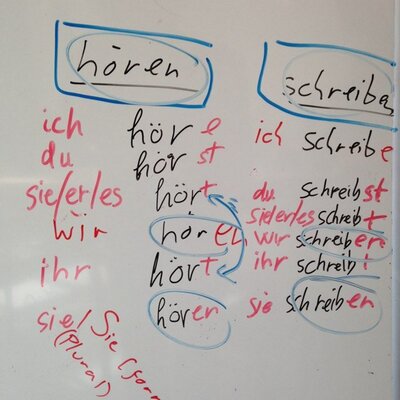 hören
ich höre
du hörst
sie/er/es hört
wir hören
ihr hört
hören
sie/Sie (form
(Plural)
schreiben
ich schreibe
du schreibst
sie/er/es schreibt
wir schreiben
ihr schreibt
sie schreiben